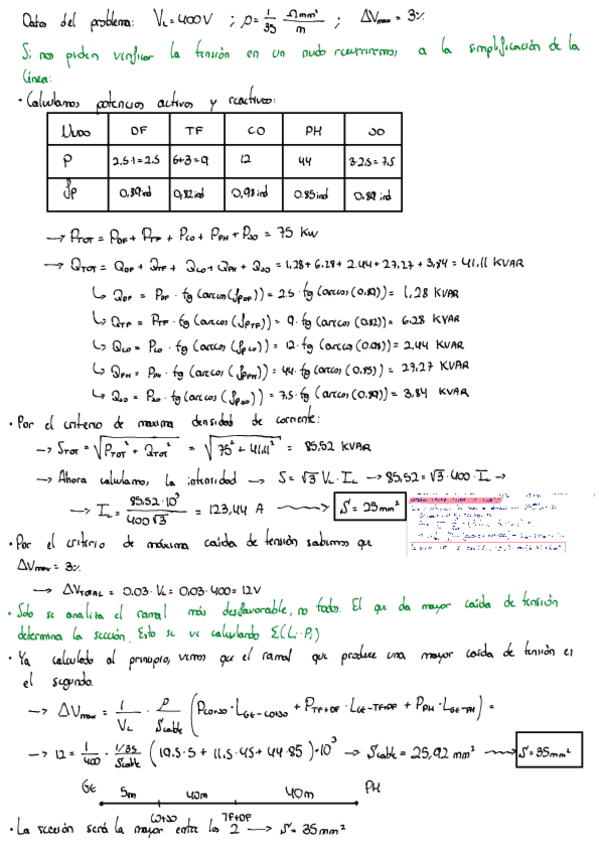 Datos del problema: V_L = 400 V ; ρ = 1/35 Ωmm²/m ; ΔVmax = 3%
Si nos piden verificar la tensión en un nudo recurriremos a la simplificación de la
línea:
· Calculamos potencias activas y reactivas:
Nudo DF TF CO PH JO
P 2.5·1=2.5 6+3=9 12 44 3·2.5=7.5
fp 0,89ind 0,82ind 0,98ind 0.85ind 0.89ind
→ P_TOT = P_DF + P_TF + P_CO + P_PH + P_JO = 75 KW
→ Q_TOT = Q_DF + Q_TF + Q_CO + Q_PH + Q_JO = 1,28 + 6.28 + 2.44 + 27,27 + 3,84 = 41,11 KVAR
↳ Q_DF = P_DF · tg (arcos (fp_DF)) = 2.5 · tg (arcos (0.89)) = 1,28 KVAR
↳ Q_TF = P_TF · tg (arcos (fp_TF)) = 9 · tg (arcos (0.82)) = 6.28 KVAR
↳ Q_CO = P_CO · tg (arcos (fp_CO)) = 12 · tg (arcos (0.98)) = 2,44 KVAR
↳ Q_PH = P_PH · tg (arcos (fp_PH)) = 44 · tg (arcos (0.85)) = 27,27 KVAR
↳ Q_JO = P_JO · tg (arcos (fp_JO)) = 7.5 · tg (arcos (0.89)) = 3.84 KVAR
· Por el criterio de maxima densidad de corriente:
→ S_TOT = √(P_TOT² + Q_TOT²) = √(75² + 41.11²) = 85,52 KVAR
→ Ahora calculamos la intensidad → S = √3 V_L · I_L → 85,52 = √3 · 400 · I_L →
→ I_L = 85,52 · 10³ / 400√3 = 123,44 A → S = 25mm²
· Por el criterio de máxima caída de tensión sabemos que
ΔVmax = 3%
→ ΔV_TOTAL = 0.03 · V_L = 0,03 · 400 = 12V
· Solo se analiza el ramal más desfavorable, no todos. El que da mayor caída de tensión
determina la sección. Esto se ve calculando Σ(Li·Pi)
· Ya calculado al principio, vemos que el ramal que produce una mayor caída de tensión es
el segundo.
→ ΔVmax = 1/V_L · ρ/Scable (P_CO+JO · L_GE-CO+JO + P_TF+DF · L_GE-TF+DF + P_PH · L_GE-PH) =
→ 12 = 1/400 · 1/35/Scable (19.5·5 + 11.5·45 + 44·85)·10³ → Scable = 25,92 mm² → S = 35mm²
GE 5m 40m 40m PH
CO+JO TF+DF
· La sección será la mayor entre las 2 → S = 35mm²